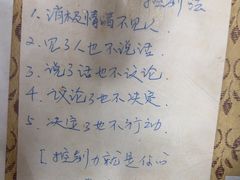 控制法
1. 消极情绪不见人
2. 见了人也不说话.
3. 说了话也不议论.
4. 议论了也不决定.
5. 决定了也不行动.
[控制力就是你的